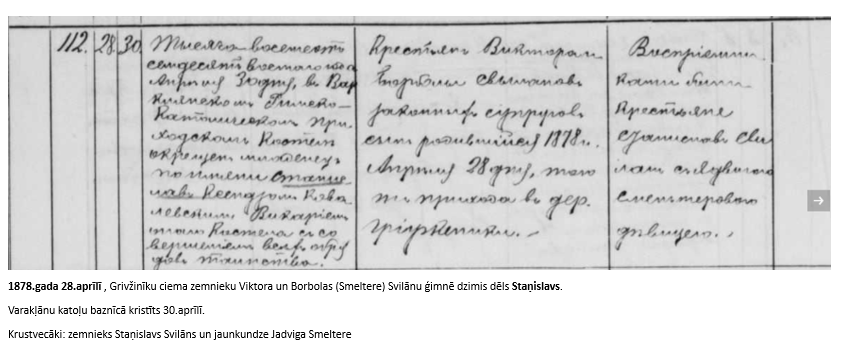 112. 28. 30.
Тысяча восемьсотъ
семдесятъ восьмого года
Апреля 30 дня, въ Вар
клянскомъ Римско-
Католическомъ При
ходскомъ Костелѣ
окрещенъ младенецъ
по имени Станис
лавъ Ксендзомъ Кова
левскимъ Викаріемъ
того Костела съ со
вершеніемъ всѣхъ обря
довъ таинства.
Крестьянъ Виктора и
Борболы Свылановъ
законныхъ супруговъ
сынъ родившійся 1878 г.
Апреля 28 дня, того
же прихода въ дер.
Воспріемни
ками были
Крестьяне
Станиславъ Сви
ланъ съ Ядвигою
Смельтеровою
дѣвицею.
1878.gada 28.aprīlī , Grivžinīku ciema zemnieku Viktora un Borbolas (Smeltere) Svilānu ģimnē dzimis dēls Staņislavs.
Varakļānu katoļu baznīcā kristīts 30.aprīlī.
Krustvecāki: zemnieks Staņislavs Svilāns un jaunkundze Jadviga Smeltere